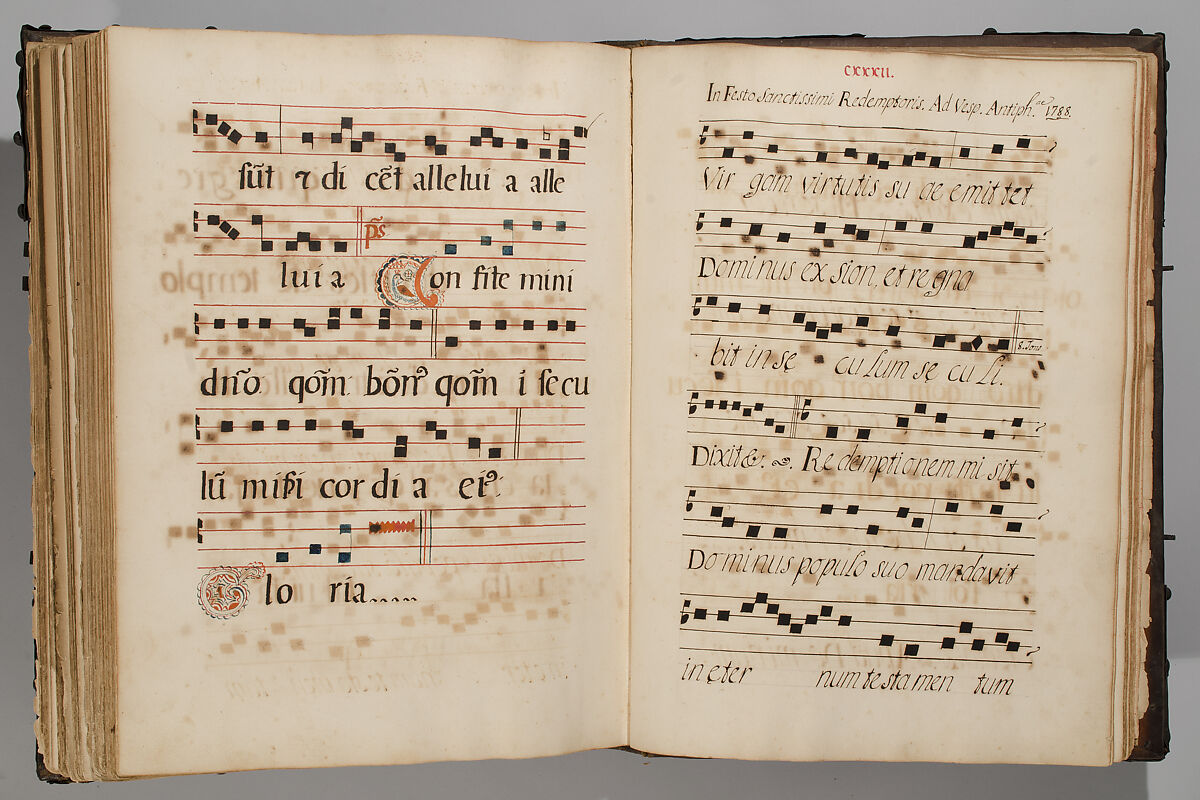 sūt ⁊ di cēt alleluia alle
luia ps Confitemini
dn̄o qōm bōn⁹ qōm i secu
lū mi cordia ei⁹
Gloria.....
CXXXII.
In Festo Sanctissimi Redemptoris. Ad Vesp. Antiph.ae 1788.
Virgam virtutis suae emittet
Dominus ex sion, et regna
bit in sę culum sę culi. 8. Toni
Dixit &. Redemptionem misit
Dominus populo suo mandavit
in ęternum testamentum